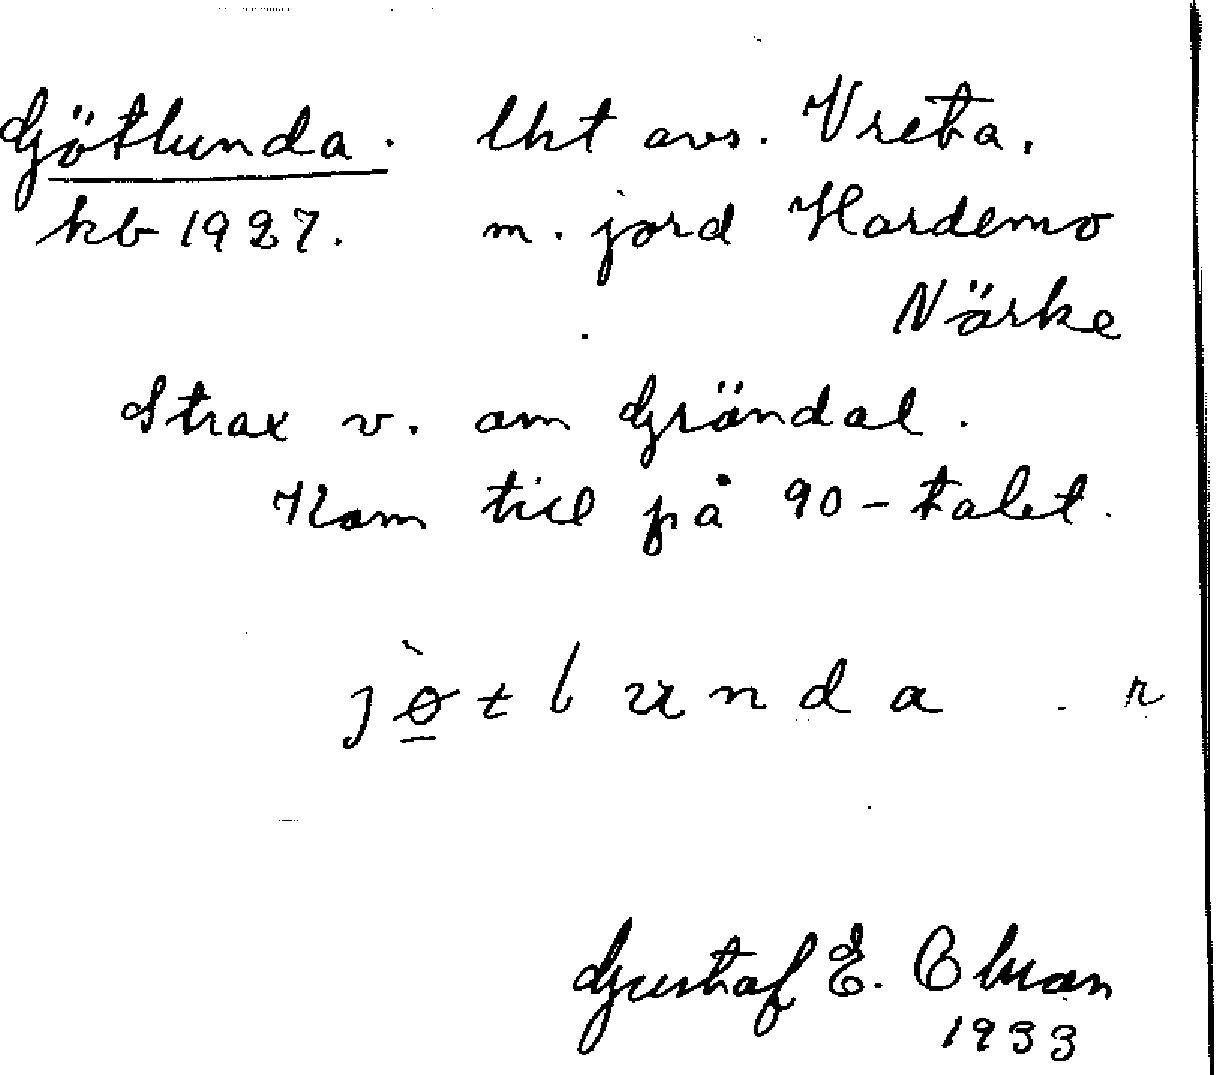 Götlunda. lht avs. Vreta.
kb 1927. m. jord Hardemo
Närke
Strax v. om Gröndal.
Kom till på 90-talet.
jø̀tlunda r
Gustaf E.
1933